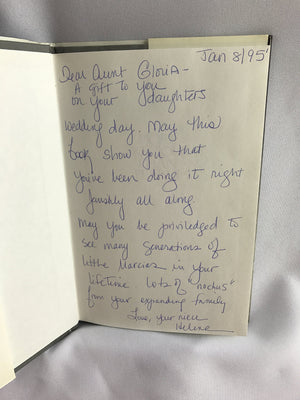 Jan 8/95'
Dear Aunt Gloria-
A gift to you
on your daughters
wedding day. May this
book show you that
you've been doing it right
all along.
May you be priviledged to
see many generations of
little Marcias in your
lifetime. Lots of "nachus"
from your expanding family
Love, your niece
Helene